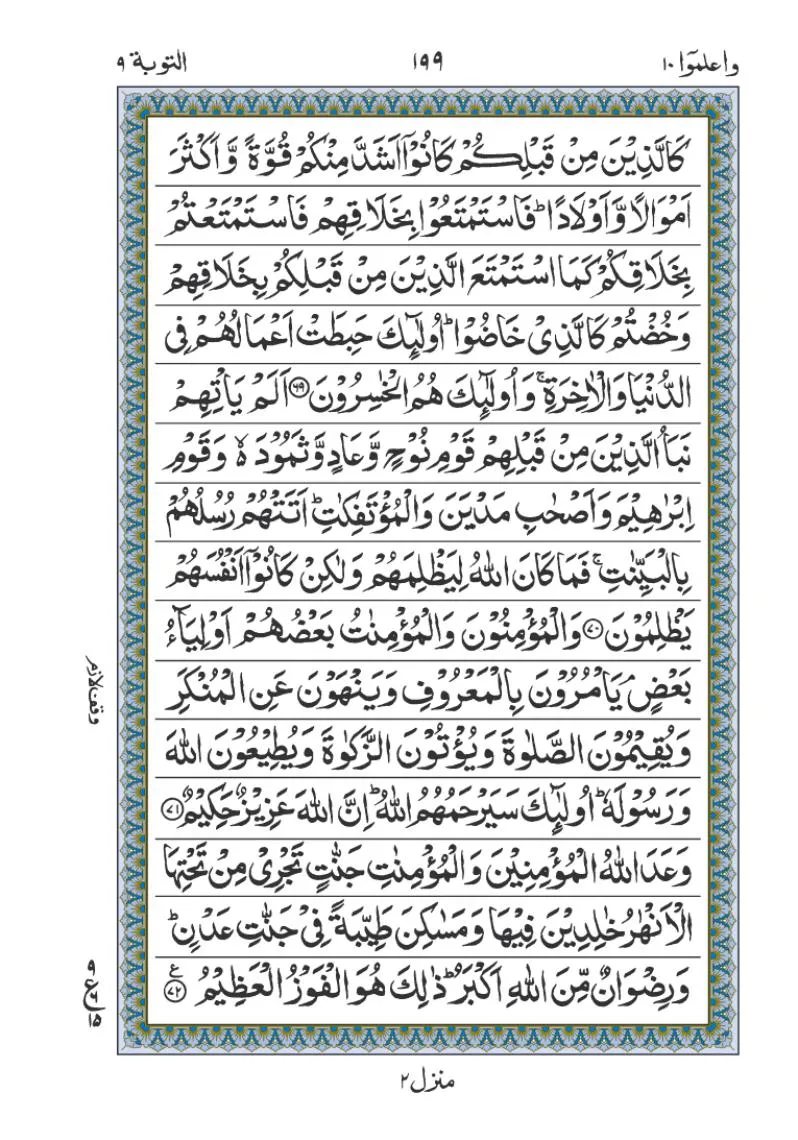 واعلموٓا ١٠
١٩٩
التوبة ٩
كَالَّذِيْنَ مِنْ قَبْلِكُمْ كَانُوْۤا اَشَدَّ مِنْكُمْ قُوَّةً وَّاَكْثَرَ
اَمْوَالًا وَّاَوْلَادًا ؕ فَاسْتَمْتَعُوْا بِخَلَاقِهِمْ فَاسْتَمْتَعْتُمْ
بِخَلَاقِكُمْ كَمَا اسْتَمْتَعَ الَّذِيْنَ مِنْ قَبْلِكُمْ بِخَلَاقِهِمْ
وَخُضْتُمْ كَالَّذِىْ خَاضُوْا ؕ اُولٰٓئِكَ حَبِطَتْ اَعْمَالُهُمْ فِى
الدُّنْيَا وَالْاٰخِرَةِ ۚ وَاُولٰٓئِكَ هُمُ الْخٰسِرُوْنَ ۝٦٩ اَلَمْ يَاْتِهِمْ
نَبَاُ الَّذِيْنَ مِنْ قَبْلِهِمْ قَوْمِ نُوْحٍ وَّعَادٍ وَّثَمُوْدَ ۙ وَقَوْمِ
اِبْرٰهِيْمَ وَاَصْحٰبِ مَدْيَنَ وَالْمُؤْتَفِكٰتِ ؕ اَتَتْهُمْ رُسُلُهُمْ
بِالْبَيِّنٰتِ ۚ فَمَا كَانَ اللّٰهُ لِيَظْلِمَهُمْ وَلٰكِنْ كَانُوْۤا اَنْفُسَهُمْ
يَظْلِمُوْنَ ۝٧٠ وَالْمُؤْمِنُوْنَ وَالْمُؤْمِنٰتُ بَعْضُهُمْ اَوْلِيَآءُ
بَعْضٍ ۘ يَاْمُرُوْنَ بِالْمَعْرُوْفِ وَيَنْهَوْنَ عَنِ الْمُنْكَرِ
وقف لازم
وَيُقِيْمُوْنَ الصَّلٰوةَ وَيُؤْتُوْنَ الزَّكٰوةَ وَيُطِيْعُوْنَ اللّٰهَ
وَرَسُوْلَهٗ ؕ اُولٰٓئِكَ سَيَرْحَمُهُمُ اللّٰهُ ؕ اِنَّ اللّٰهَ عَزِيْزٌ حَكِيْمٌ ۝٧١
وَعَدَ اللّٰهُ الْمُؤْمِنِيْنَ وَالْمُؤْمِنٰتِ جَنّٰتٍ تَجْرِىْ مِنْ تَحْتِهَا
الْاَنْهٰرُ خٰلِدِيْنَ فِيْهَا وَمَسٰكِنَ طَيِّبَةً فِىْ جَنّٰتِ عَدْنٍ ؕ
وَرِضْوَانٌ مِّنَ اللّٰهِ اَكْبَرُ ؕ ذٰلِكَ هُوَ الْفَوْزُ الْعَظِيْمُ ۝٧٢ ع
٩
ع ٦
١٥
منزل ٢